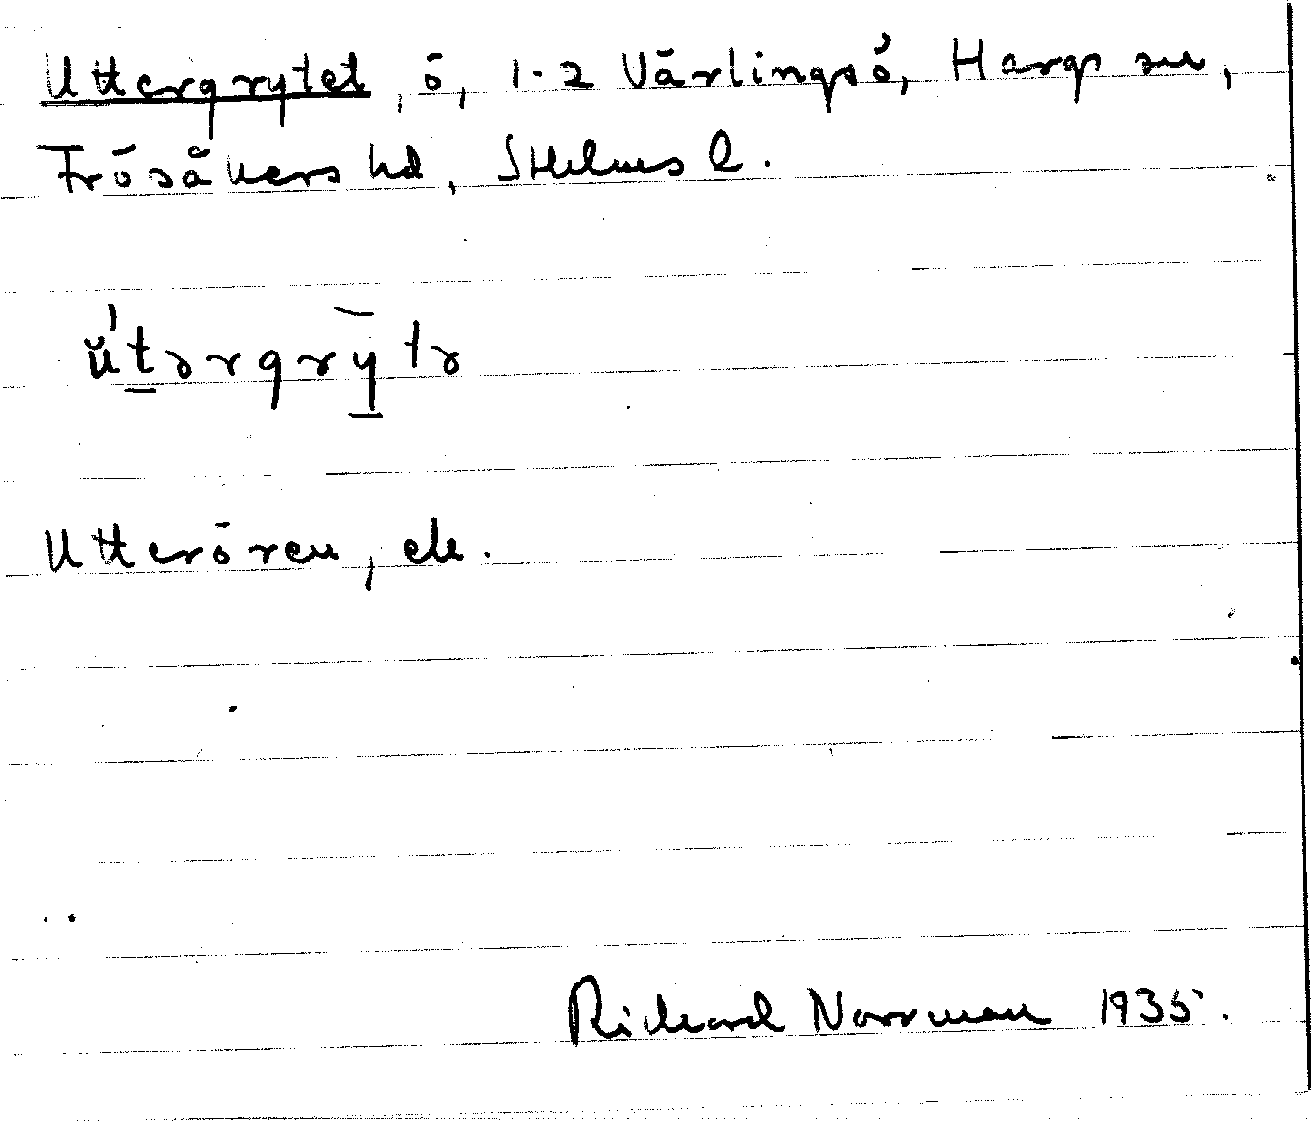 Uttergrytet, ö, 1-2 Värlingsö, Hargs sn,
Frösåkers hd, Sthlms l.
ŭ́tərgrȳtə
Utterören, ek.
Richard Norrman 1935.